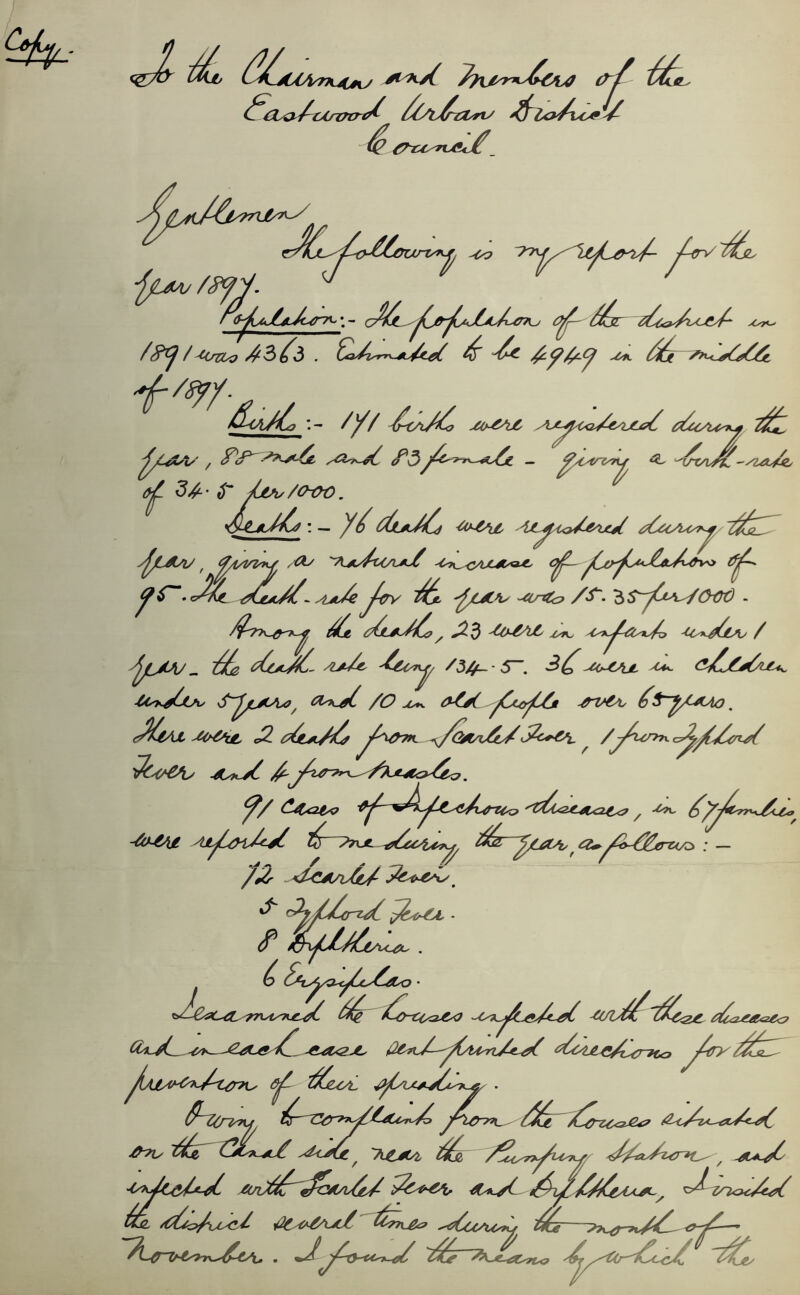 Copy.
To the Chairman and Members of the
Eastwood Urban District
Council.
Gentlemen
The following is my report for the
year 1897.
Population:- The population of the district in
1891 was 4363. Estimated to be 4747 in the middle
of 1897.
Births:- 171 births were registered during the
year, 88 male and 83 female - giving a birth-rate
of 34.5 per 1000.
Deaths:- 76 deaths were registered during the
year, giving a natural increase of population of
95. The death-rate for the year was 15.35 per 1000.
Among the deaths, 23 were in infants under 1
year - the death-rate being 134.5. 36 were in children
under 5 years, and 10 in old people over 65 years.
There were 2 deaths from Scarlet Fever, 1 from Typhoid
Fever and 4 from Measles.
91 cases of Infectious diseases, in 67 families,
were reported to me during the year, as follows:-
72 Scarlet Fever.
5 Typhoid Fever.
8 Diphtheria.
6 Erysipelas.
I examined the houses infected with these diseases
and in each case sent printed directions for the
prevention of their spreading.
Owing to complaints from the houses situated
on the Canal side, near the Pumping Station, and
infected with Scarlet Fever and Diphtheria, I visited
the district several times during the month of
November. I found the means by which the